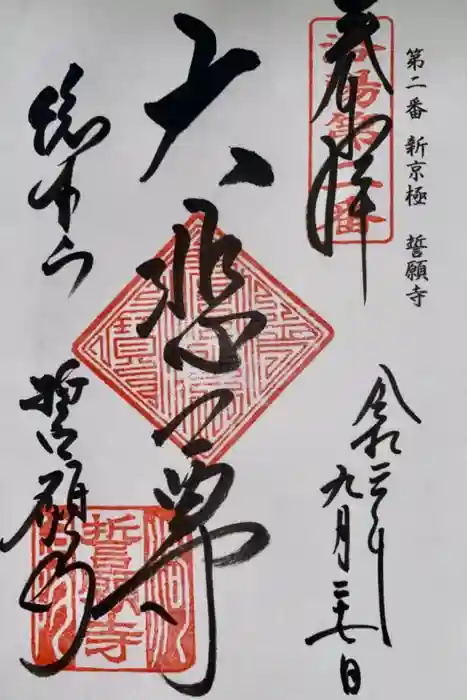 第二番 新京極 誓願寺
奉拝
洛陽第二番
令和二年
九月二十七日
大悲尊
総本山
誓願寺
誓願寺